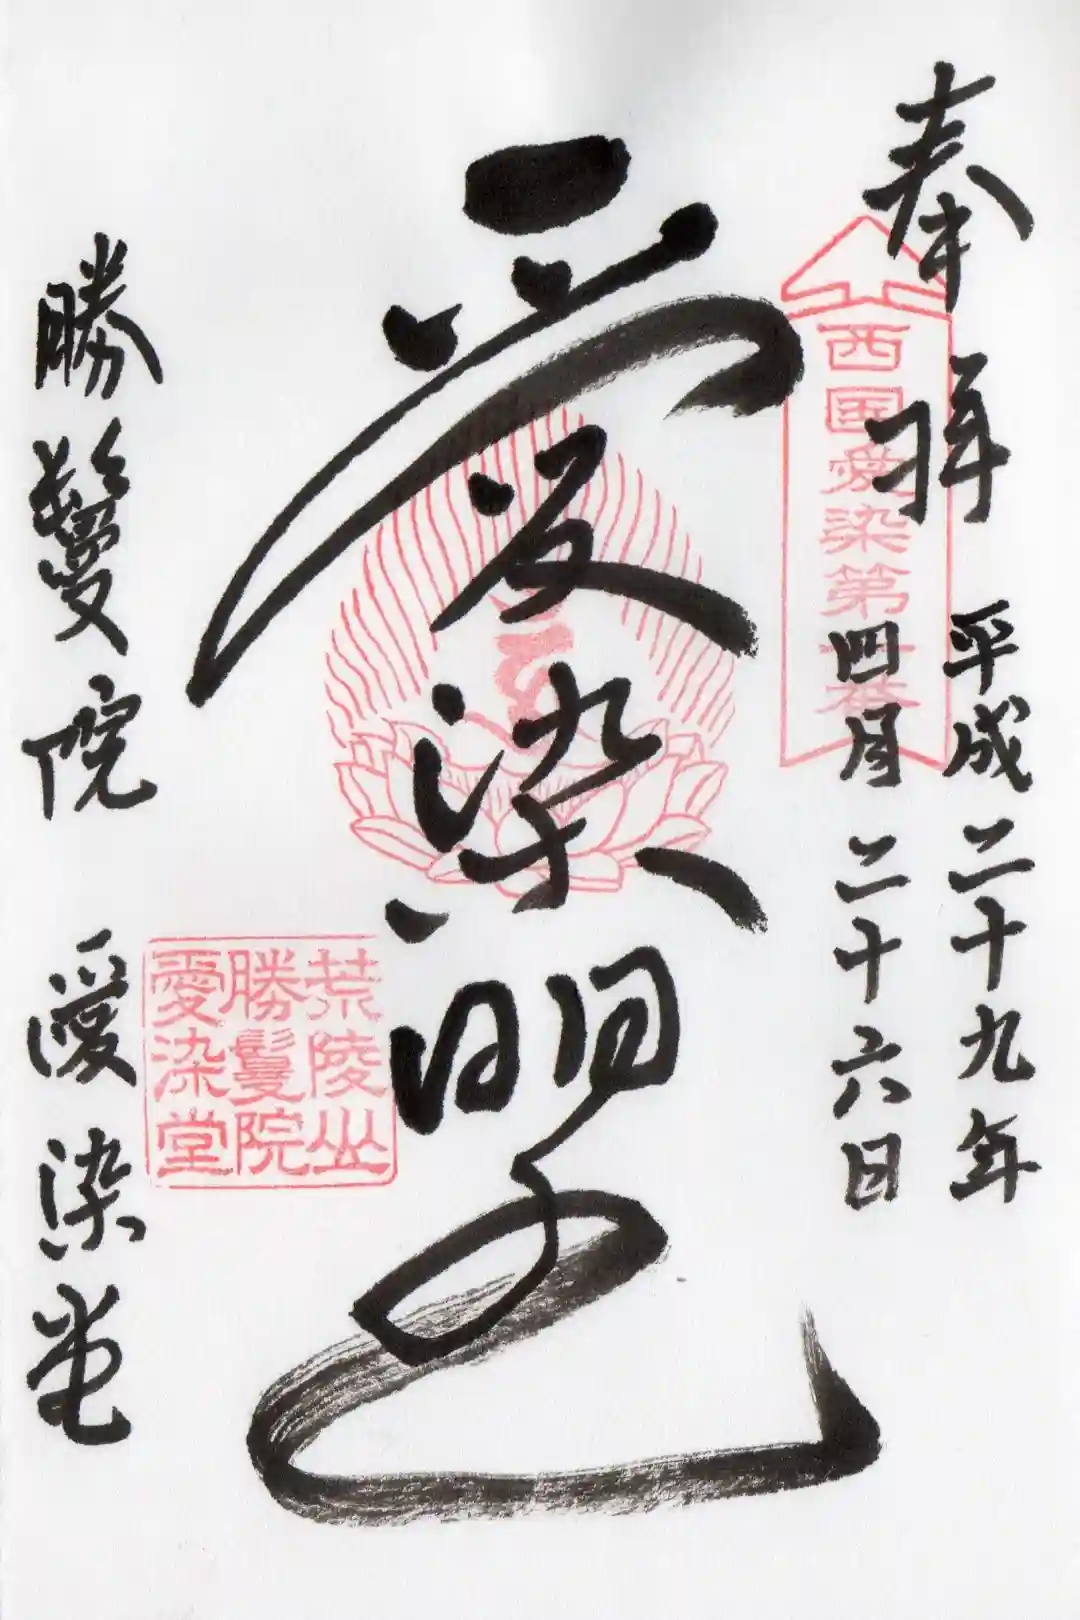 奉拝
平成二十九年
四月二十六日
西国愛染第十番
愛染明王
荒陵山
勝鬘院
愛染堂
勝鬘院 愛染堂